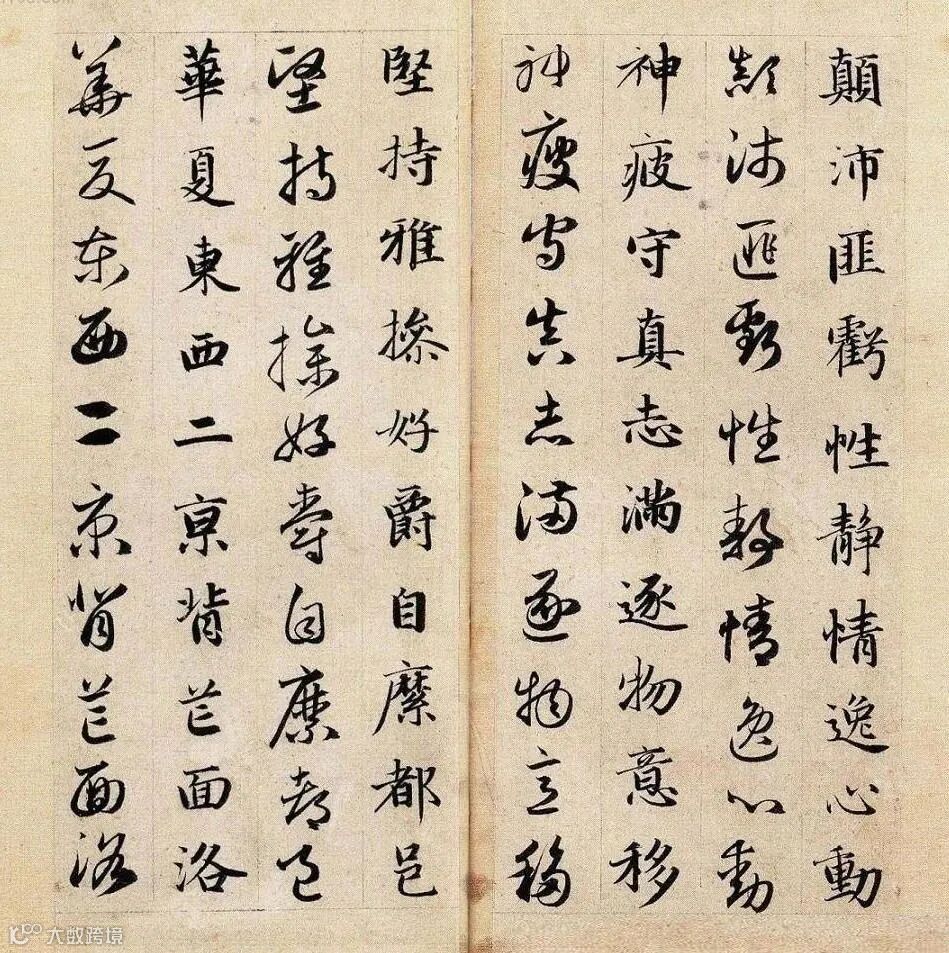 顛沛匪虧性静情逸心動
顛沛匪虧性静情逸心動
神疲守真志滿逐物意移
神疲守真志滿逐物意移
堅持雅操好爵自縻都邑
堅持雅操好爵自縻都邑
華夏東西二京背芒面洛
華夏东西二京背芒面洛
大数跨境